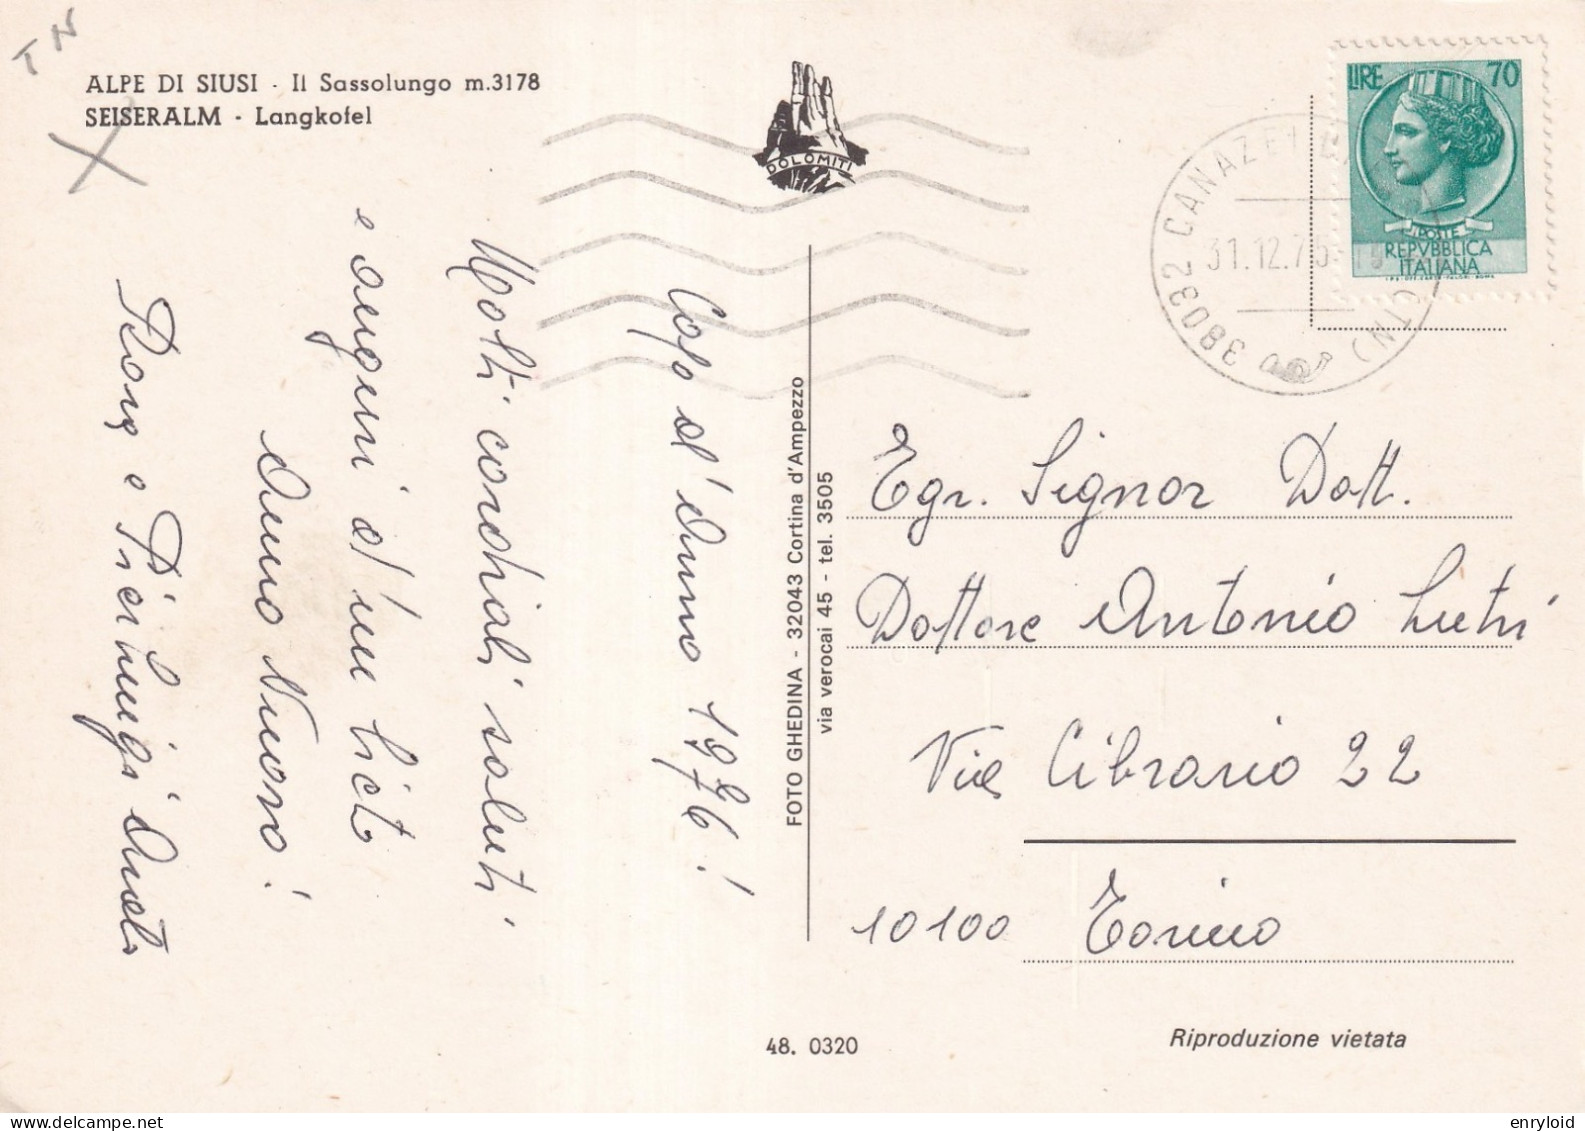 TN
ALPE DI SIUSI - Il Sassolungo m.3178
SEISERALM - Langkofel
DOLOMITI
LIRE 70
POSTE
REPVBBLICA
ITALIANA
38032 CANAZEI (TN)
31.12.75
Capo d'Anno 1976!
Molti cordiali saluti
e auguri d'un lieto
Anno Nuovo!
e Pierluigi
FOTO GHEDINA - 32043 Cortina d'Ampezzo
via verocai 45 - tel. 3505
Egr. Signor Dott.
Dottore Antonio
Via Cibrario 22
10100 Torino
48. 0320
Riproduzione vietata
enryloid